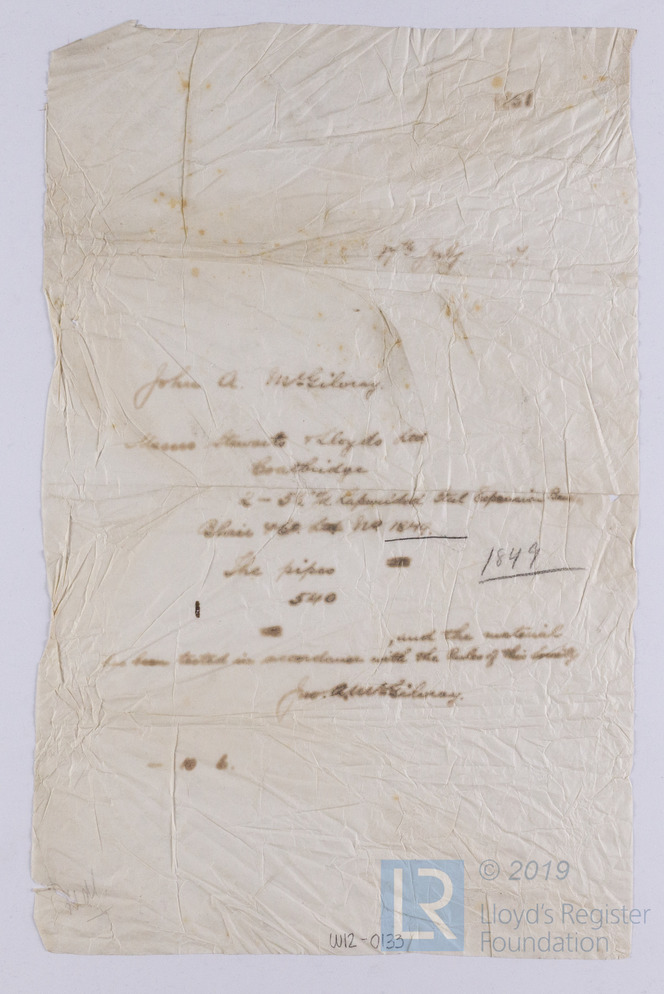 17th July
John A. McGilvray.
Messrs Stewarts & Lloyds Ltd
Coatbridge
2 - 5 Lapwelded Steel Expansion
Blair & Co. Ltd No
1849
The pipes
540
, and the material
been tested in accordance with the Rules of this Society
Jno. A. McGilvray.
- 10 6.
W12-0133/
LR
© 2019
Lloyd's Register
Foundation